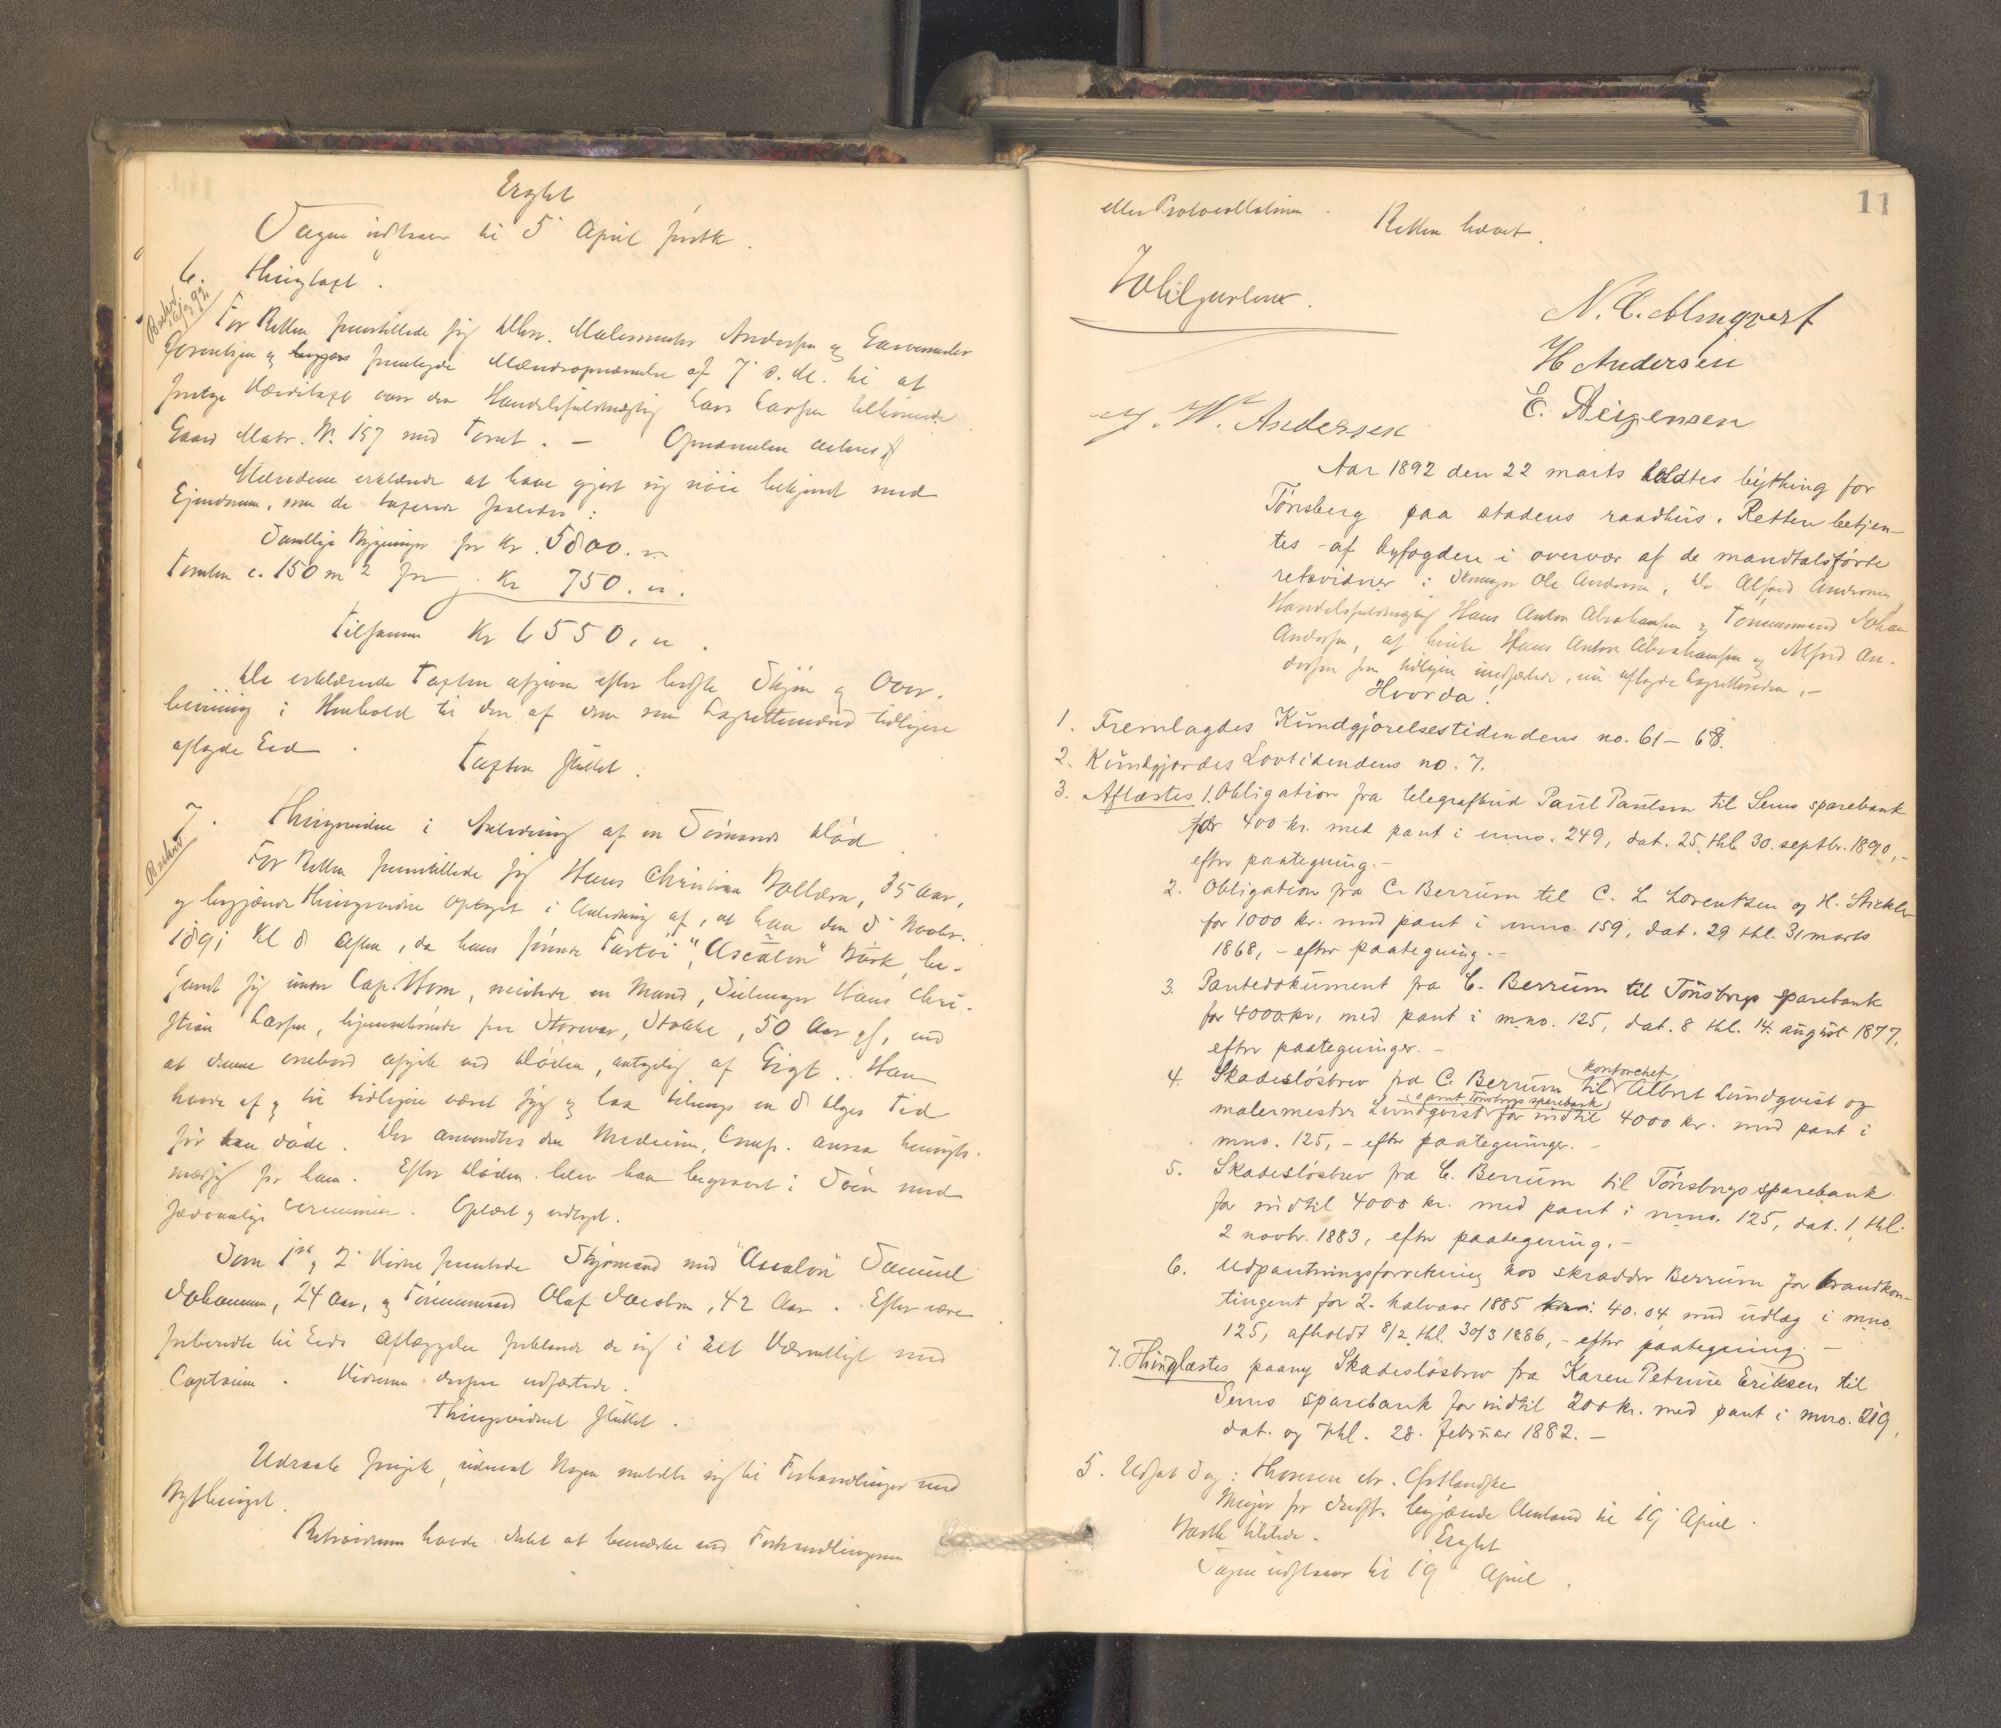 Eragtet
Sagen udsaar til 5 April førstk.
6. Thingtaxt.
Beskrev. 16/3 92
For Retten fremstillede sig DHrr. Malermester Andersen og Garvermester
Jørgensen og fremlagde Mændsopnævnelse af 7 d. M. til at
foretage Værditaxt over den Handelsfuldmægtig Lars Larsen tilhørende
Gaard Matr. N. 157 med Tomt. – Opnævnelsen
Mændene erklærede at have gjort sig nøie bekjendt med
Eiendommen, som de taxerede saaledes:
Samtlige Bygninger for Kr. 5800.
Tomten c. 150 m 2 for Kr 750.
Tilsammen Kr 6550.
De erklærede Taxten afgiven efter bedste Skjøn og Over-
bevisning i Henhold til den af dem som Lagrettemænd tidligere
aflagte Ed.
Taxten sluttet.
7. Thingsvidne i Anledning af en Sømands Død
Beskrev
For Retten fremstillede sig Hans Christian Bollærn, 35 Aar,
og begjærede Thingsvidne optaget i Anledning af, at han den 8 Novbr.
1891 Kl 8 Aften, da hans førende Fartøi, "Ascalon" Bark, be-
fandt sig under Cap. Horn, mistede en Mand, Seilmager Hans Chri-
stian Larsen, hjemmehørende paa Storevar, Stokke, 50 Aar gl., ved
at denne ombord afgik ved Døden, antagelig af Gigt. Han
havde af og til tidligere været syg og laa tilsengs en 8 Dages Tid
før han døde. Der anvendtes den Medicin, Capt. ansaa hensigts-
mæssig for ham. Efter Døden blev han begravet i Søen med
sædvanlige Ceremonier. Oplæst og vedtaget.
Som 1ste og 2 Vidne fremstod Styrmand med "Ascalon" Samuel
Johannesen, 24 Aar, og Tømmermand Olaf Jacobsen, 42 Aar. Efter være
forberedte til Eds Aflæggelse forklarede de sig i Alt Væsentligt som
Captainen. Vidnerne derpaa edfæstede.
Thingsvidnet sluttet.
Udraabt skeede, uden at Nogen meldte sig til Forhandlinger ved
Bythinget.
Retsvidnerne havde Intet at bemærke ved Forhandlingerne
11
eller Protocollationen.
Retten hævet.
N. C. Almqvest
H Andersen
E. Steizensen
W. Andersen
Aar 1892 den 22 marts holdtes bything for
Tönsberg paa stadens raadhus. Retten betjen-
tes af byfogden i overvær af de mandtalsførte
retsvidner: Skomager Ole Andersen, do Alfred Andersen,
Handelsfuldmægtig Hans Anton Abrahamsen og Tømmermand Johan
Andersen, af hvilke Hans Anton Abrahamsen og Alfred An-
dersen som tidligere uedfæstede, nu aflagde Lagretteeden, –
Hvorda!
1. Fremlagdes Kundgjørelsestidendens no. 61–68.
2. Kundgjordes Lovtidendens no. 7.
3. Aflæstes 1. Obligation fra telegrafbud Paul Paulsen til Sems sparebank
for 400 kr. med pant i mno. 249, dat. 25, thl 30. septbr. 1890, –
efter paategning. –
2. Obligation fra C. Berrum til C. L. Lorentzen og H. Stickler
for 1000 kr. med pant i mno. 159, dat. 29 thl. 31 marts
1868, – efter paategning. –
3. Pantedokument fra C. Berrum til Tönsbergs sparebank
for 4000 kr, med pant i mno. 125, dat. 8 thl. 14. august 1877,
efter paategninger. –
4. Skadesløsbrev fra C. Berrum til kontorchef Albert Lundqvist og
malermester Lundqvist samt Tönsbergs sparebank for indtil 4000 kr. med pant i
mno. 125, – efter paategninger. –
5. Skadesløsbrev fra C. Berrum til Tönsbergs sparebank
for indtil 4000 kr. med pant i mno. 125, dat. 1, thl.
2 novbr. 1883, efter paategning. –
6. Udpantningsforretning hos skrædder Berrum for brandkon-
tingent for 2. halvaar 1885 40.04 med udlæg i mno.
125, afholdt 8/2 thl. 30/3 1886, – efter paategning. –
7. Thinglæstes paany Skadesløsbrev fra Karen Petrine Eriksen til
Sems sparebank for indtil 200 kr. med pant i mno. 219,
dat. og thl. 28. februar 1882. –
5. Udsat Sag: Thoresen ctr. Østlandske
Meyer for Indst. begjærede Anstand til 19 April.
Barth tilstede.
Eragtet
Sagen udsaar til 19 April.